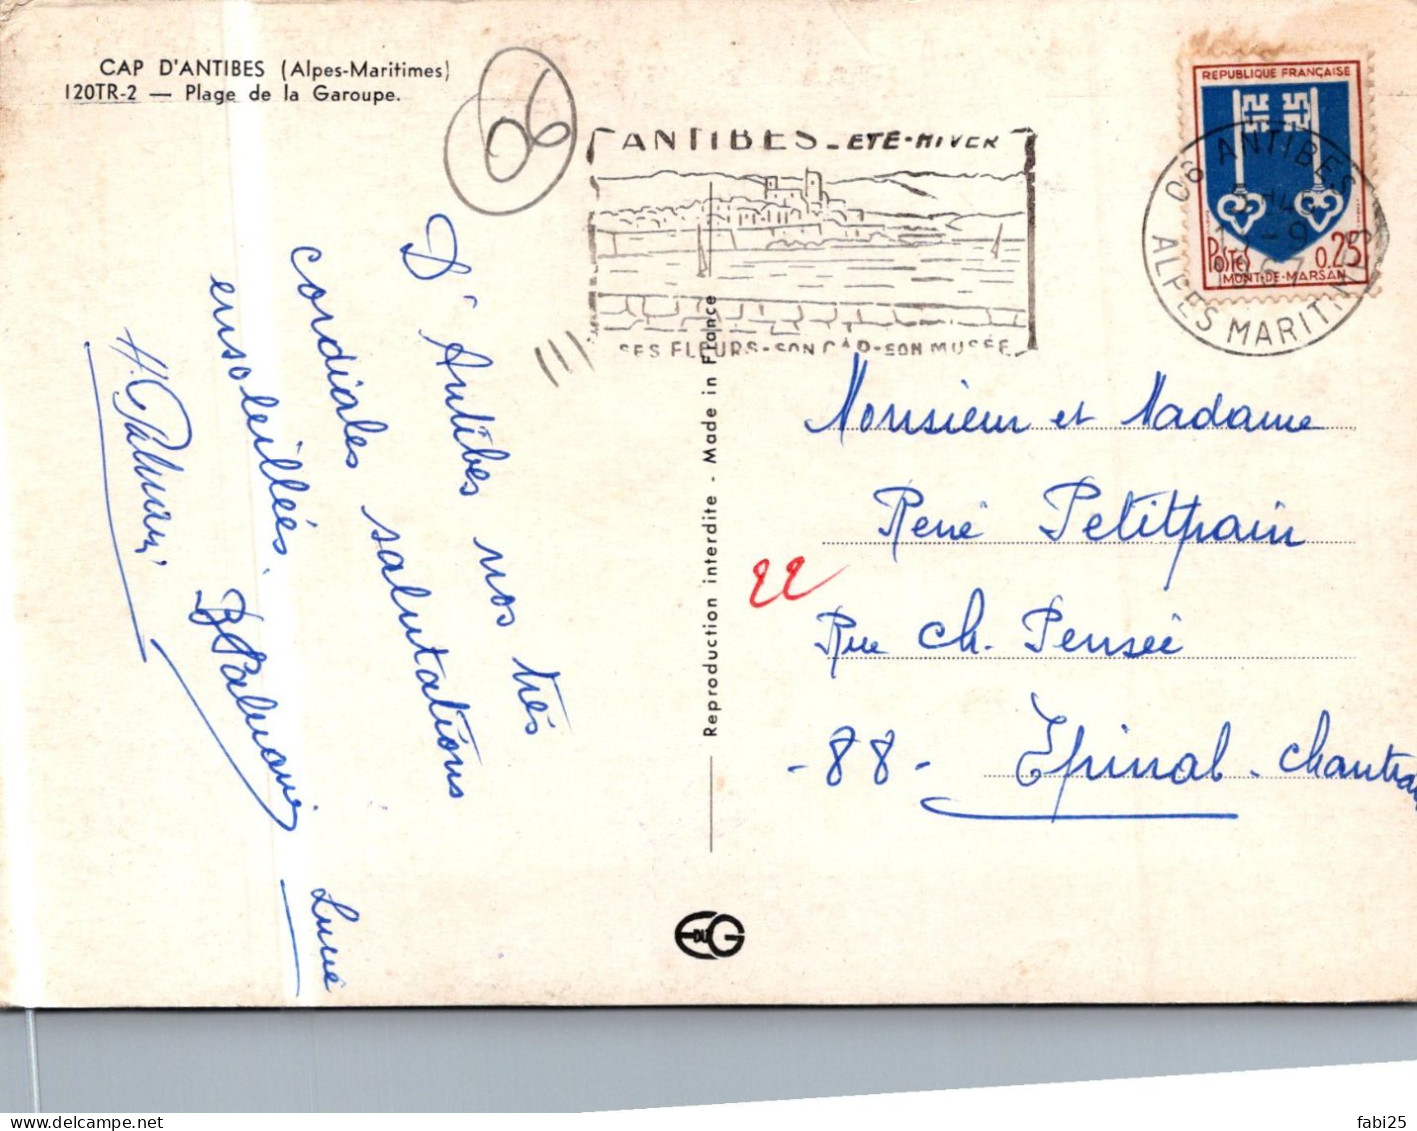 CAP D'ANTIBES (Alpes-Maritimes)
120TR-2 — Plage de la Garoupe.
06
ANTIBES - ETE-HIVER
SES FLEURS - SON CAP - SON MUSÉE
REPUBLIQUE FRANÇAISE
POSTES 0.25
MONT-DE-MARSAN
06 ANTIBES
ALPES MARITIMES
D'Antibes nos très
cordiales salutations
ensoleillées.
Reproduction interdite - Made in France
Monsieur et Madame
René Petitpain
22
Rue Ch. Pensée
- 88 - Epinal - Chantra
E DU G
fabi25